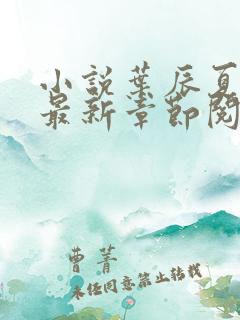 小说叶辰夏
最新章节阅
曹菁
未经同意禁止转载